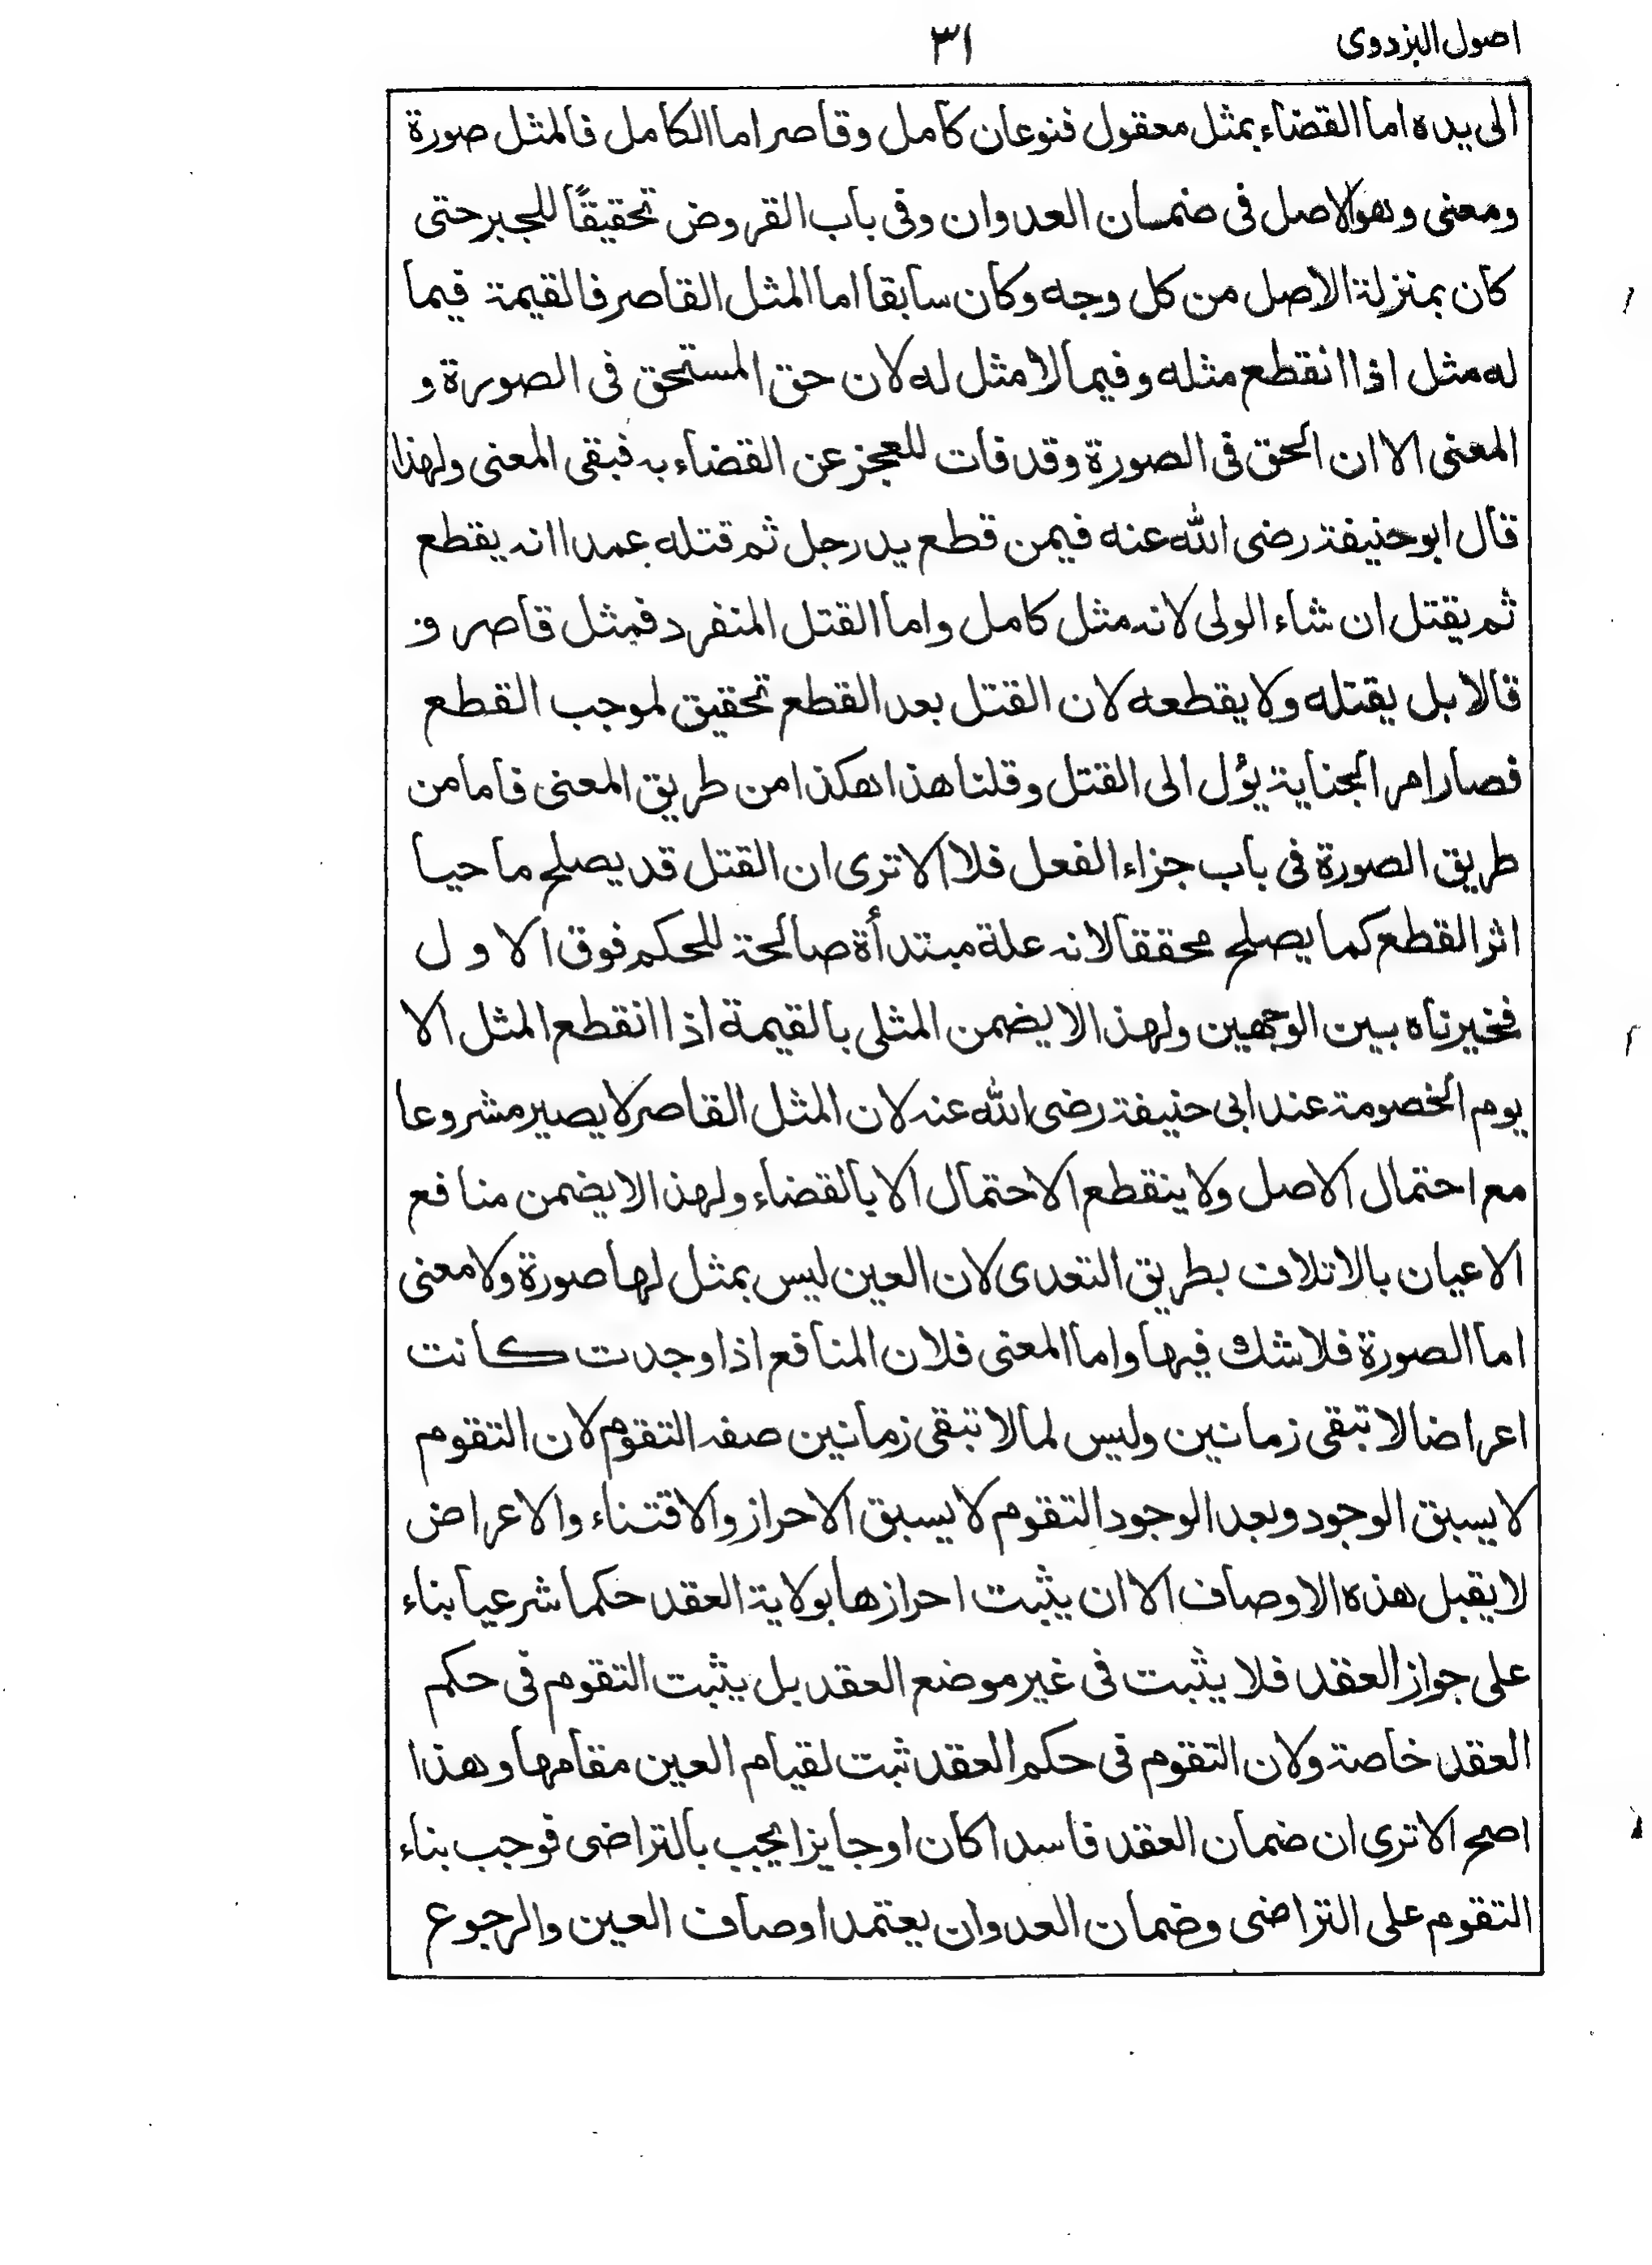 اصول البزدوى
٣١
الى يده اما القضاء بمثل معقول فنوعان كامل وقاصر اما الكامل فالمثل صورة
ومعنى وهو الاصل فى ضمان العدوان وفى باب القروض تحقيقًا للجبر حتى
كان بمنزلة الاصل من كل وجه وكان سابقا اما المثل القاصر فالقيمة فيما
له مثل اذا انقطع مثله وفيما لا مثل له لان حق المستحق فى الصورة و
المعنى الا ان الحق فى الصورة وقد فات للعجز عن القضاء به فبقى المعنى ولهذا
قال ابو حنيفة رضى الله عنه فيمن قطع يد رجل ثم قتله عمدا انه يقطع
ثم يقتل ان شاء الولى لانه مثل كامل واما القتل المنفرد فمثل قاصر و
قالا بل يقتله ولا يقطعه لان القتل بعد القطع تحقيق لموجب القطع
فصار امر الجناية يؤل الى القتل وقلنا هذا هكذا من طريق المعنى فاما من
طريق الصورة فى باب جزاء الفعل فلا الا ترى ان القتل قد يصلح ماحيا
اثر القطع كما يصلح محققا لانه علة مبتدأة صالحة للحكم فوق الاول
فخيرناه بين الوجهين ولهذا لا يضمن المثلى بالقيمة اذا انقطع المثل الا
يوم الخصومة عند ابى حنيفة رضى الله عنه لان المثل القاصر لا يصير مشروعا
مع احتمال الاصل ولا ينقطع الاحتمال الا بالقضاء ولهذا لا يضمن منافع
الاعيان بالاتلاف بطريق التعدى لان العين ليس بمثل لها صورة ولا معنى
اما الصورة فلا شك فيها واما المعنى فلان المنافع اذا وجدت كانت
اعراضا لا تبقى زمانين وليس لما لا تبقى زمانين صفة التقوم لان التقوم
لا يسبق الوجود وبعد الوجود التقوم لا يسبق الاحراز والاقتناء والاعراض
لا يقبل هذه الاوصاف الا ان يثبت احرازها بولاية العقد حكما شرعيا بناء
على جواز العقد فلا يثبت فى غير موضع العقد بل يثبت التقوم فى حكم
العقد خاصة ولان التقوم فى حكم العقد ثبت لقيام العين مقامها وهذا
اصح الا ترى ان ضمان العقد فاسدا كان او جايزا يجب بالتراضى فوجب بناء
التقوم على التراضى وضمان العدوان يعتمد اوصاف العين والرجوع